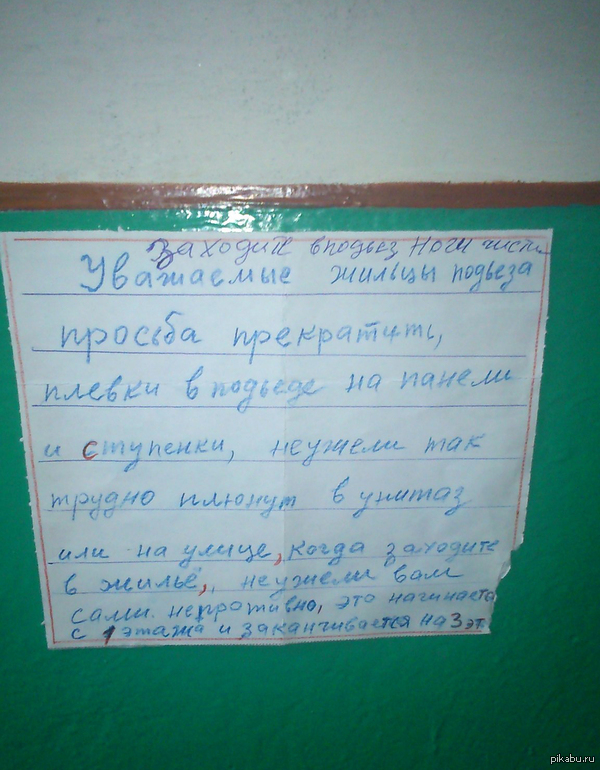 заходите вподьез ноги чисти
Уважаемые жильцы подьеза
просьба прекратить,
плевки в подьеде на панели
и ступенки, неужели так
трудно плюнут в унитаз
или на улице, когда заходите
в жильё,, неужели вам
сами. непротивно, это начинаета
с 1 этажа и заканчивается на 3 эт
pikabu.ru